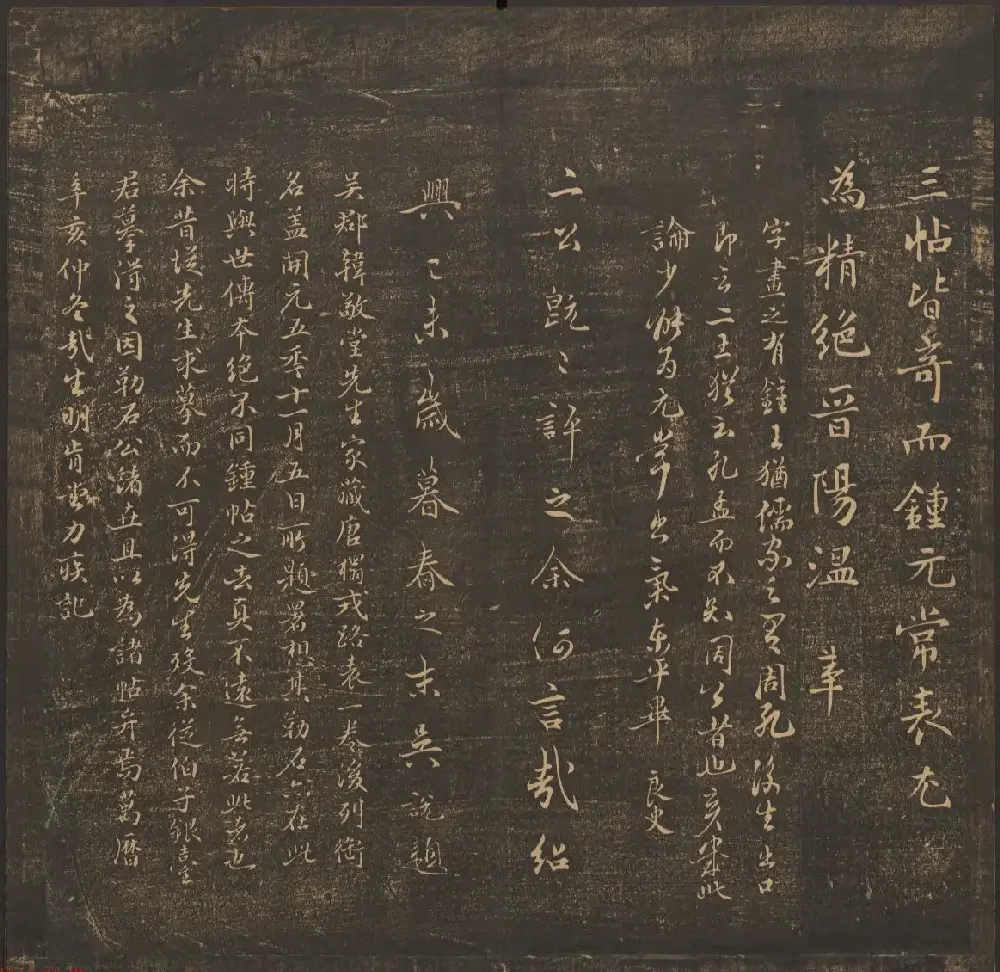 三帖皆奇而鍾元常表尤
為精絕晉陽溫革
字畫之有鍾王猶儒家之有周孔後生出口
即云二王猶云孔孟而不知周公者也亥來此
論少能為元常出氣東平畢良史
二公既〻許之余何言哉紹
興己未歲暮春之末吳說題
吳郡韓敬堂先生家藏唐搨戎路表一卷後列銜
名蓋開元五年十一月五日所題署想其勒石亦在此
時與世傳本絕不同鍾帖之去真不遠無若此多也
余昔從先生求摹而不可得先生歿余從伯子銀臺
君摹得之因勒石公諸且以為諸帖弁焉萬曆
辛亥仲冬哉生明肯堂力疾記